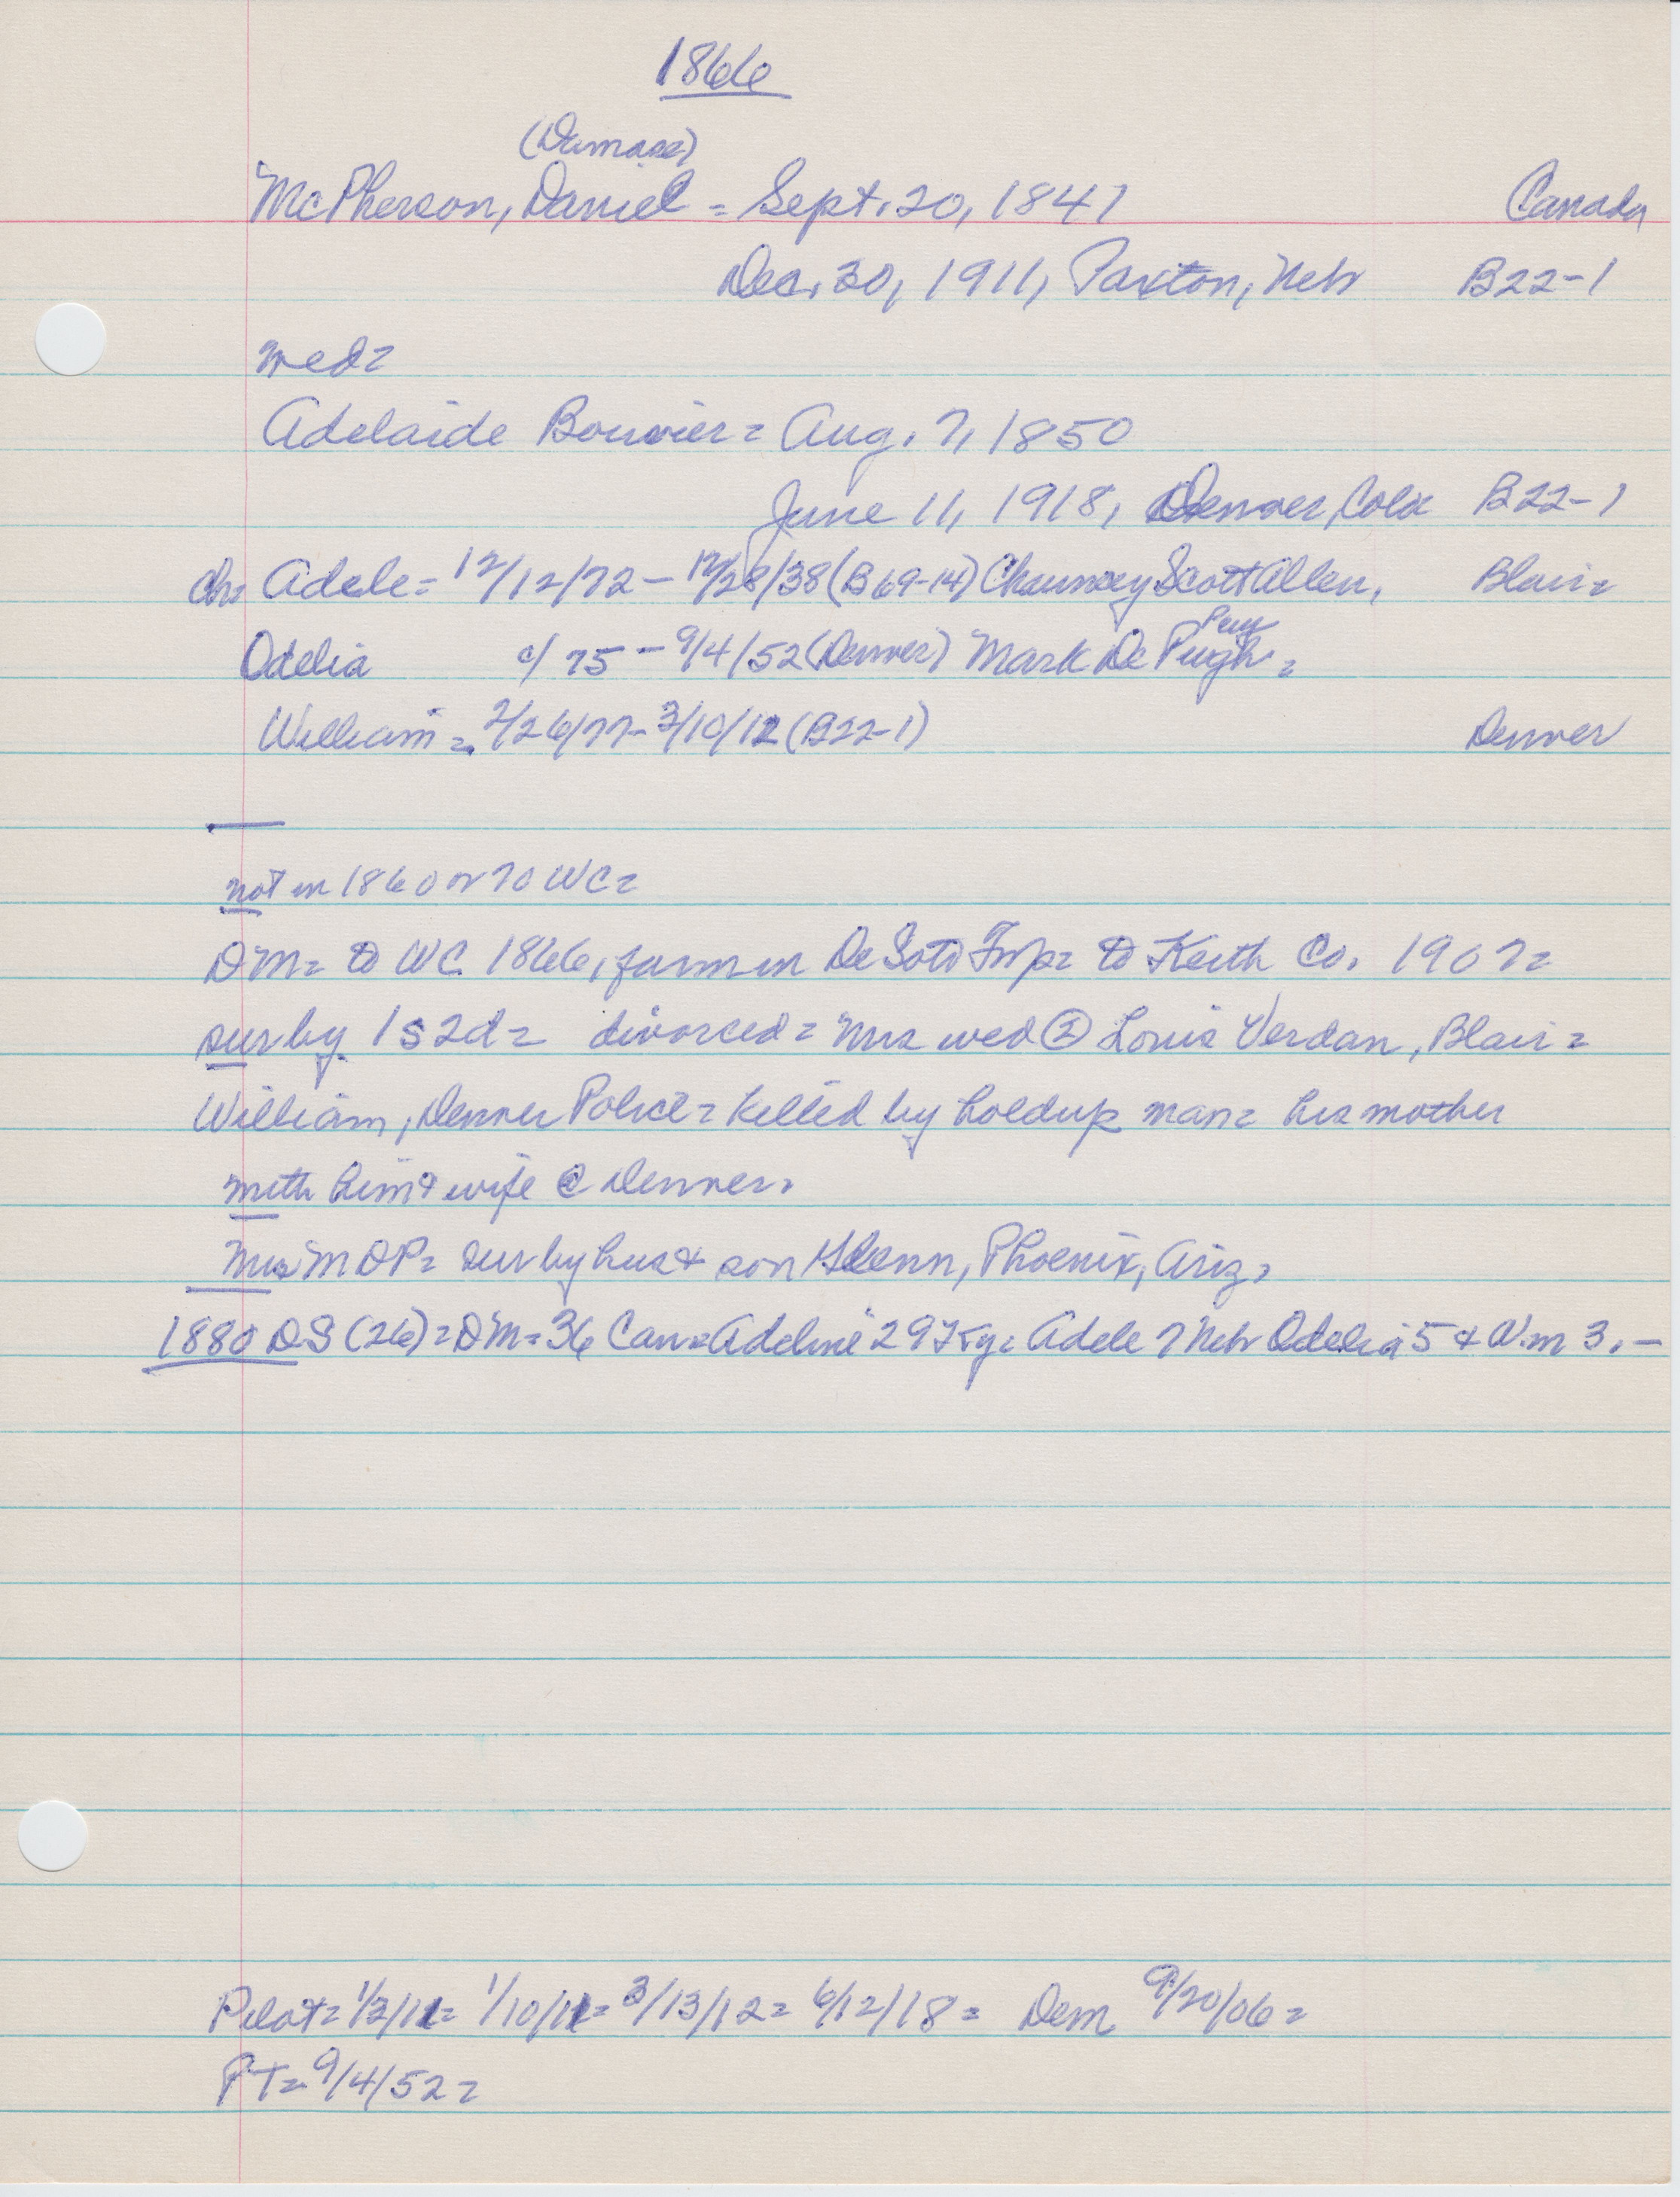 1866
(Damase)
McPherson, Daniel = Sept. 20, 1847 Canada
Dec. 30, 1911, Paxton, Nebr B22-1
wed=
Adelaide Bouvier = Aug. 7, 1850
June 11, 1918, Denver, Colo B22-1
ch= Adele = 12/12/72 - 12/28/38 (B69-14) Chauncey Scott Allen, Blair=
Odelia c/75 - 9/4/52 (Denver) Mark De Pugh =
William = 2/26/77 - 3/10/12 (B22-1) Denver
not in 1860 or 70 WC=
DM= to WC 1866, farm in De Soto Twp= to Keith Co. 1907=
sur by 1s 2d= divorced= Mrs wed ② Louis Verdan, Blair=
William, Denver Police= killed by holdup man= his mother
with him & wife @ Denver.
Mrs M DP= sur by hus & son Glenn, Phoenix, Ariz,
1880 DS (26) = DM= 36 Can= Adeline 29 Ky= Adele 7 Nebr Odelia 5 & Wm 3. -
Pilot= 1/3/12= 1/10/12= 3/13/12= 6/12/18= Dem 9/20/06=
PT= 9/4/52=